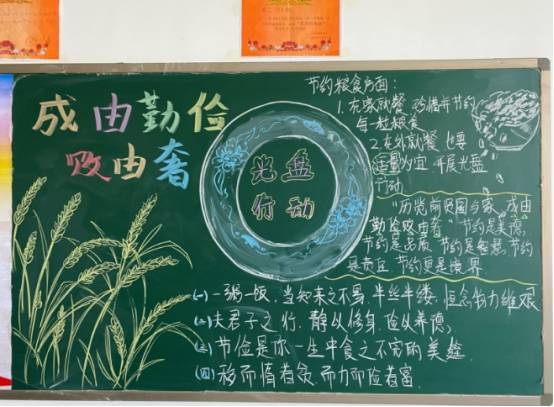 成由勤俭
败由奢
光盘
行动
节约粮食方面：
1. 在家就餐 珍惜并节约
每一粒粮食
2. 在外就餐 也要
适量为宜 开展光盘
行动
"历览前贤国与家，成由
勤俭败由奢" 节约是美德，
节约是品质 节约是智慧 节约
是责任 节约更是境界
(一) 一粥一饭，当知来之不易，半丝半缕，恒念物力维艰
(二) 夫君子之行，静以修身，俭以养德；
(三) 节俭是你一生中食之不完的美筵.
(四) 侈而惰者贫，而力而俭者富.